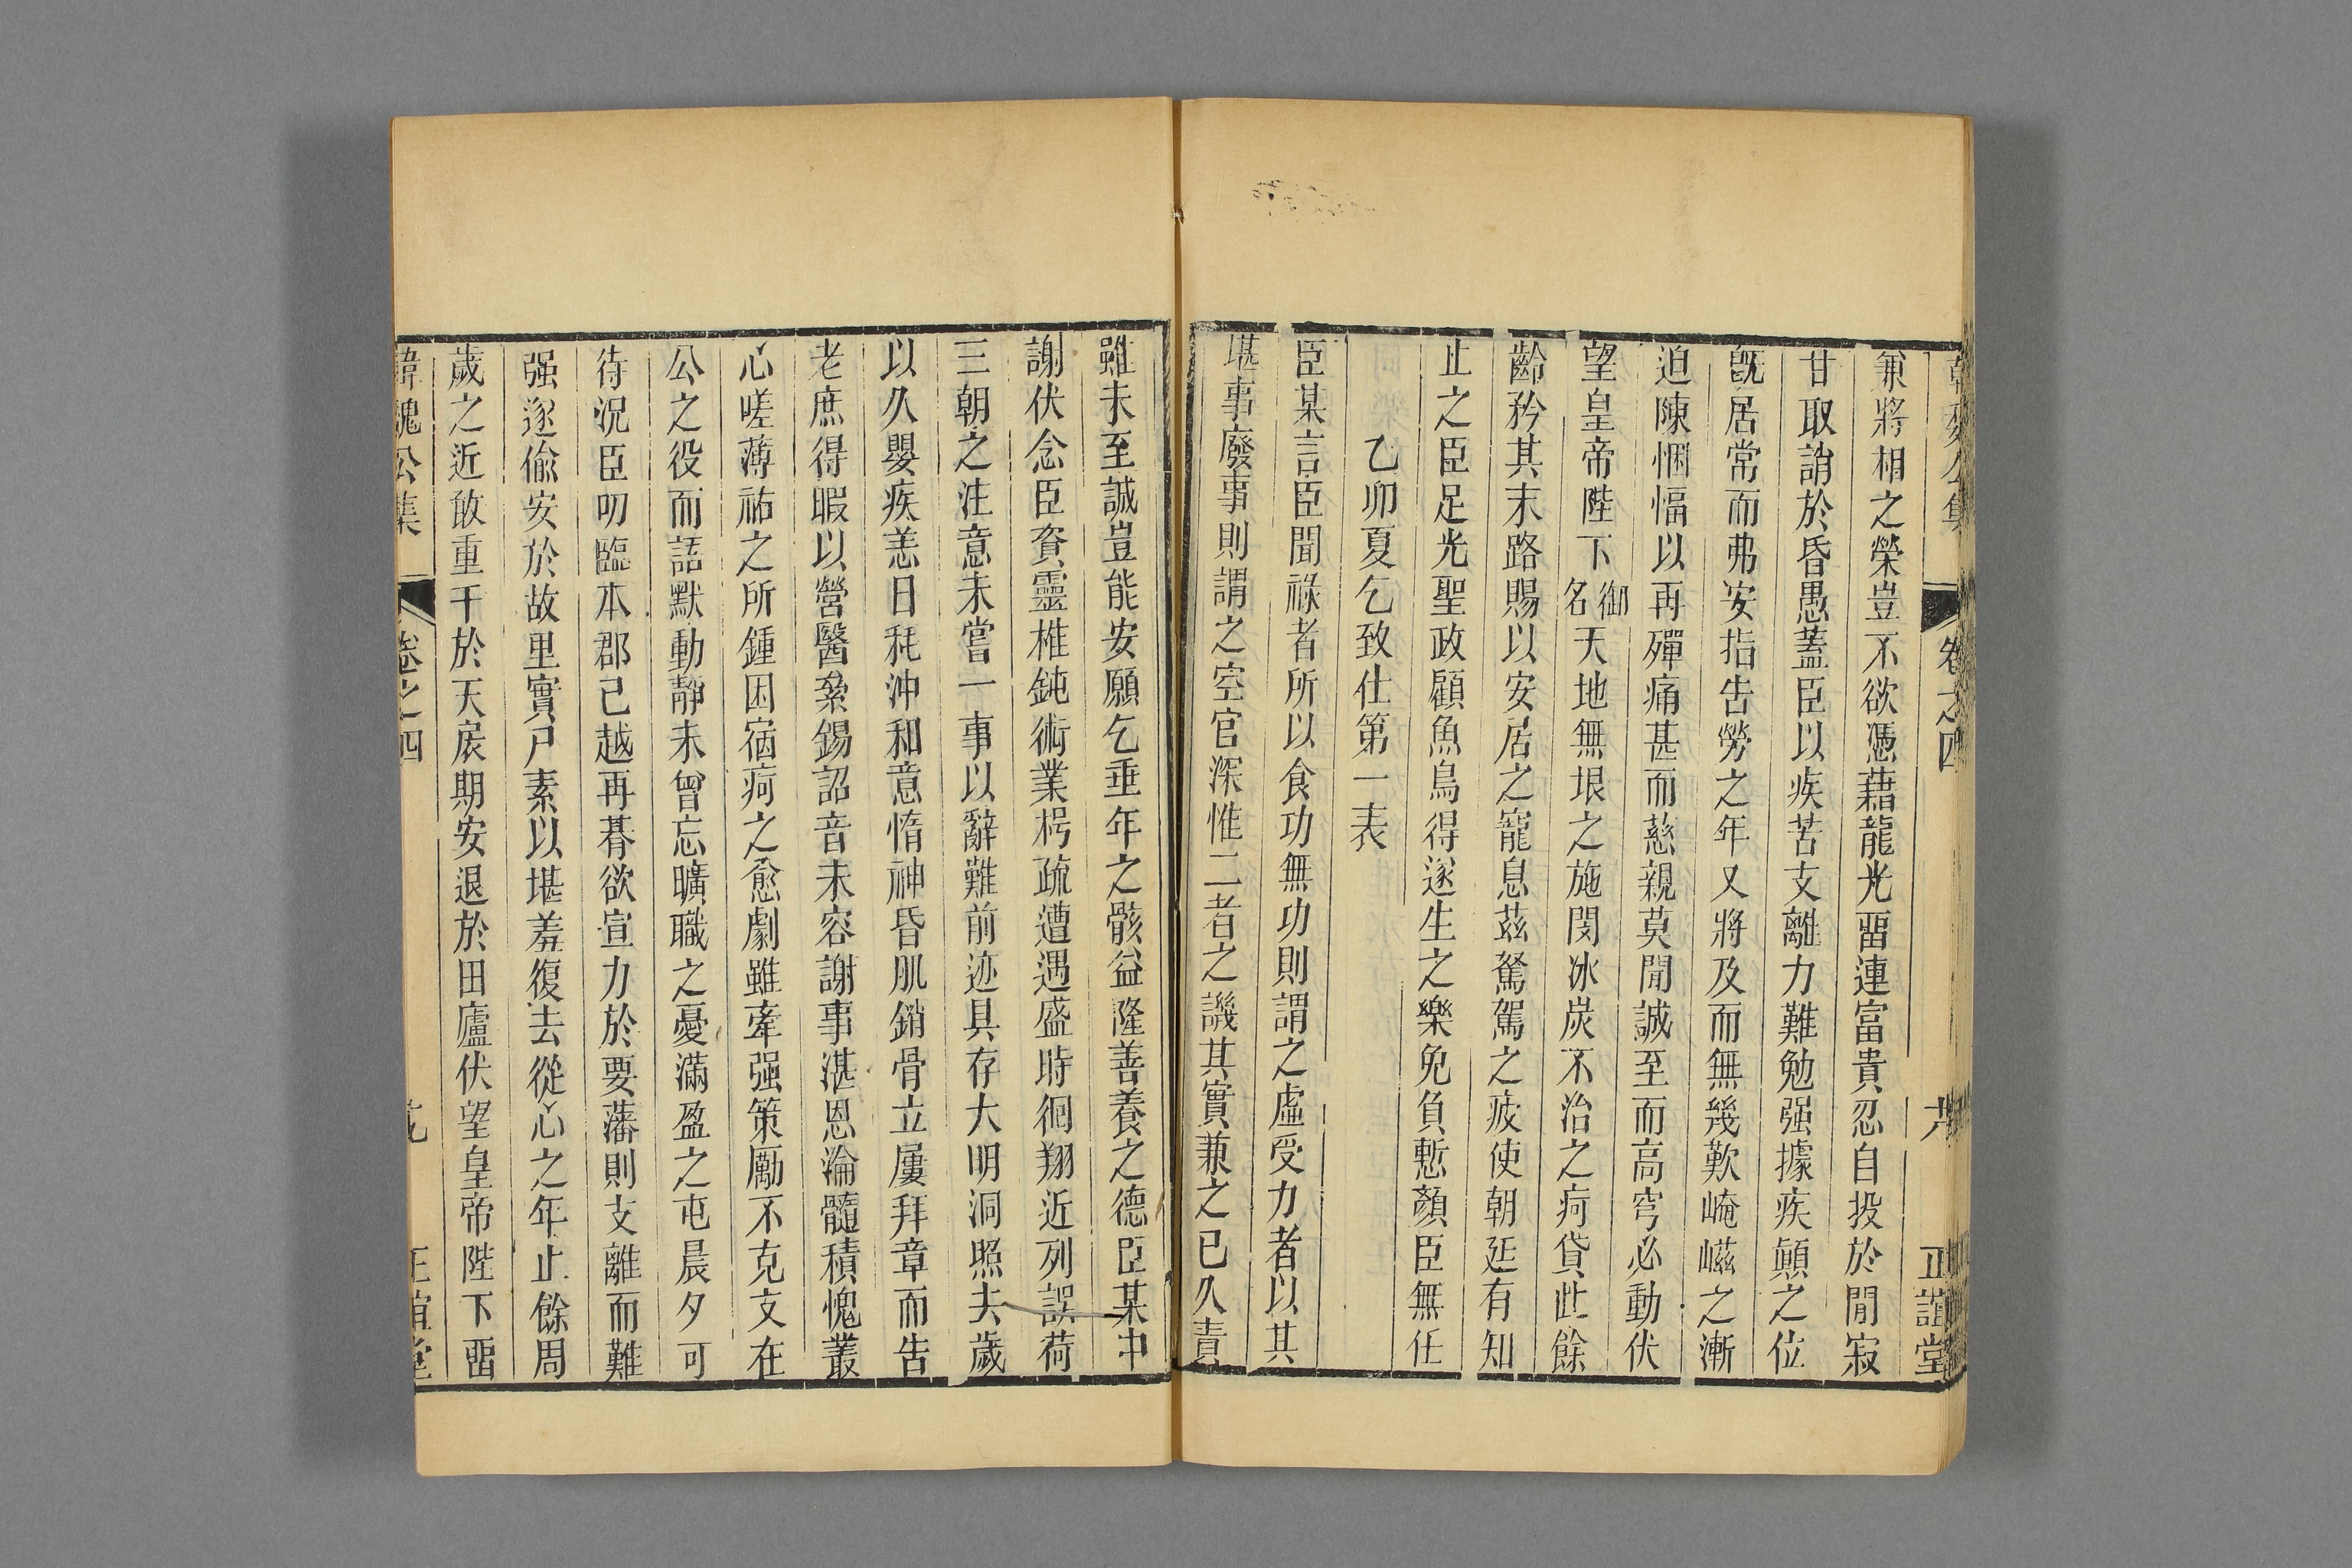 韓魏公集 卷之四 六 正誼堂
兼將相之榮豈不欲憑藉龍光畱連富貴忍自投於閒寂
甘取誚於昏愚蓋臣以疾苦支離力難勉强據疾顚之位
旣居常而弗安指告勞之年又將及而無幾歎崦嵫之漸
迫陳悃愊以再殫痛甚而慈親莫聞誠至而高穹必動伏
望皇帝陛下御名天地無垠之施閔冰炭不治之疴貸此餘
齡矜其末路賜以安居之寵息茲駑駕之疲使朝延有知
止之臣足光聖政顧魚鳥得遂生之樂免負慙顏臣無任
乙卯夏乞致仕第一表
臣某言臣聞祿者所以食功無功則謂之虛受力者以其
堪事廢事則謂之空官深惟二者之譏其實兼之已久責
雖未至誠豈能安願乞垂年之骸益隆善養之德臣某中
謝伏念臣賚靈椎鈍術業枵疏遭遇盛時徊翔近列誤荷
三朝之注意未嘗一事以辭難前迹具存大明洞照夫歲
以久嬰疾恙日秏沖和意惰神昏肌銷骨立屢拜章而告
老庶得暇以營醫絫錫詔音未容謝事湛恩淪髓積愧叢
心嗟薄祐之所鍾困宿疴之愈劇雖牽强策厲不克支在
公之役而語默動靜未曾忘曠職之憂滿盈之屯晨夕可
待況臣叨臨本郡已越再朞欲宣力於要藩則支離而難
强遂偸安於故里實尸素以堪羞復去從心之年止餘周
歲之近敢重干於天扆期安退於田廬伏望皇帝陛下畱
韓魏公集 卷之四 正誼堂